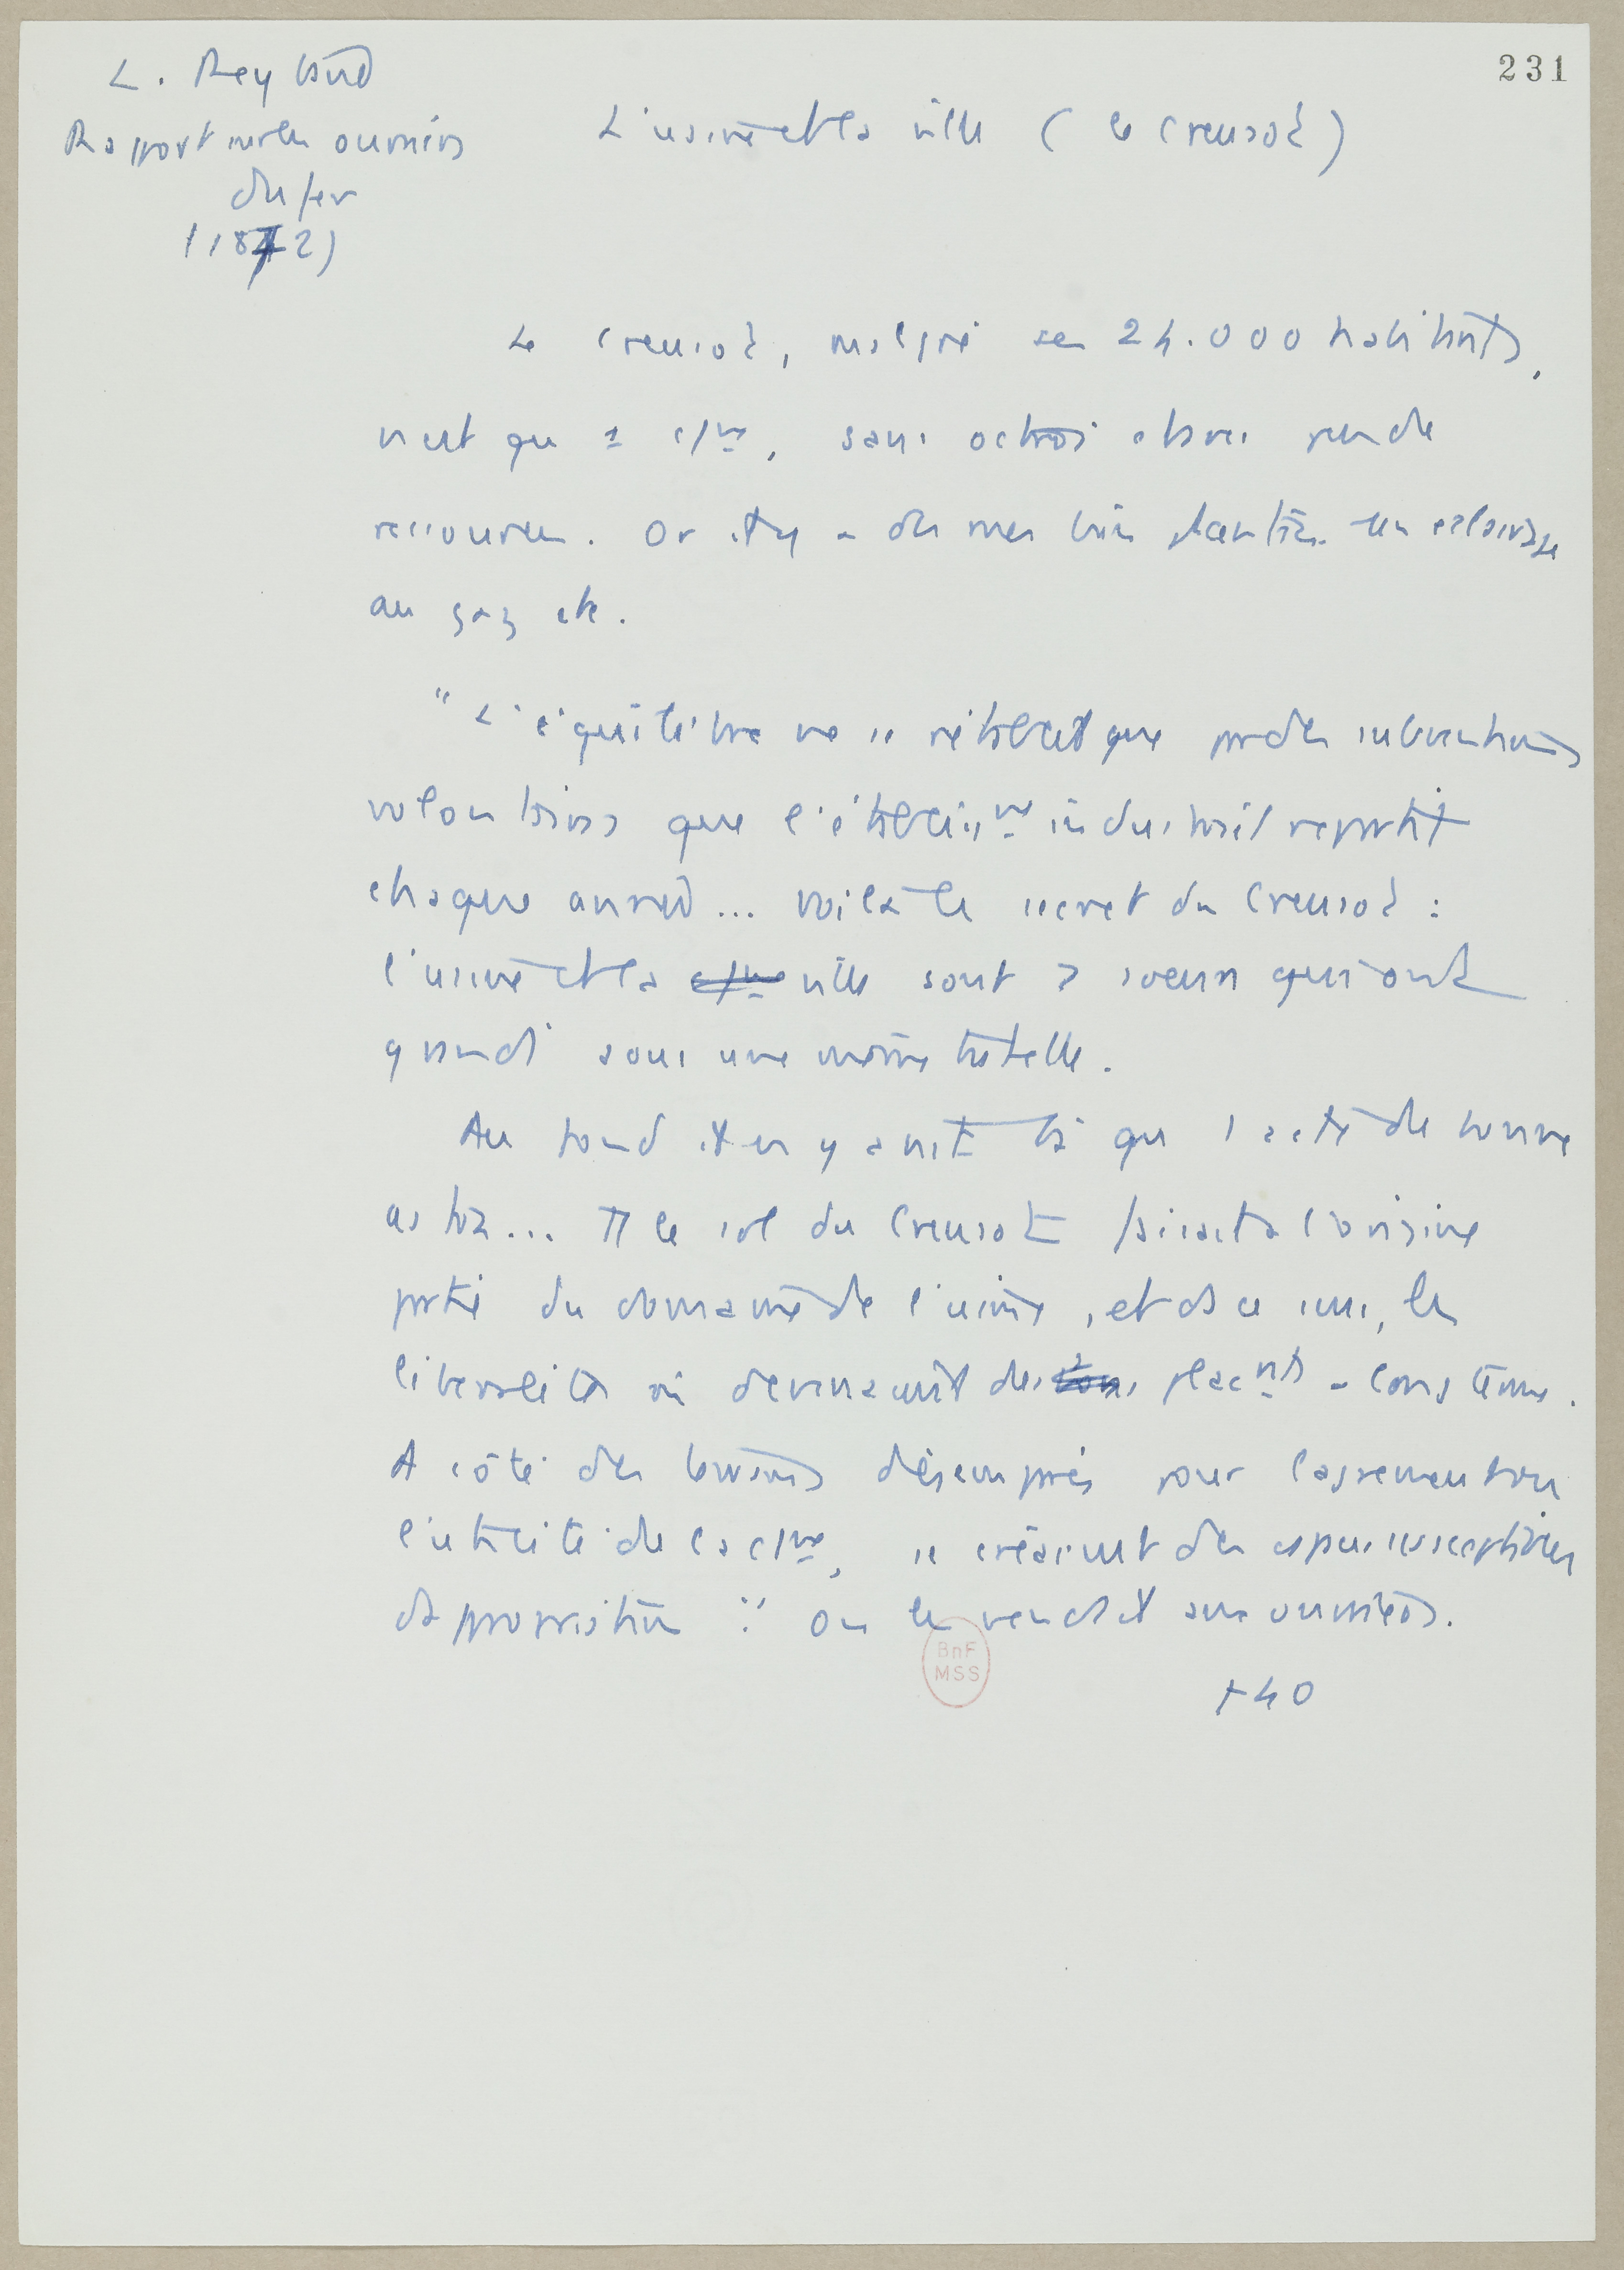 231
L. Reybaud
Rapport sur les ouvriers
du fer
(1872)
L'usine et la ville (le Creusot)
Le Creusot, malgré ses 24.000 habitants,
n'est qu 1 cne, sans octroi et avec peu de
ressources. Or il y a des rues bien plantées. Un éclairage
au gaz etc.
"L'équilibre ne se rétablit que par des subventions
volontaires que l'établissnt industriel répartit
chaque année... Voilà le secret du Creusot :
l'usine et la ville sont 2 soeurs qui ont
grandi sous une même tutelle.
Au fond il n'y avait là qu 1 acte de bonne
Tt le sol du Creusot faisait à l'origine
partie du domaine de l'usine, et ds ce sens, les
libéralités en devenaient des placnts à long terme.
A côté des terrains désemparés pour l'agrément ou
l'utilité de la cne, se créaient des espaces susceptibles
d'appropriation ": on les vendait aux ouvriers.
+40
BnF
MSS